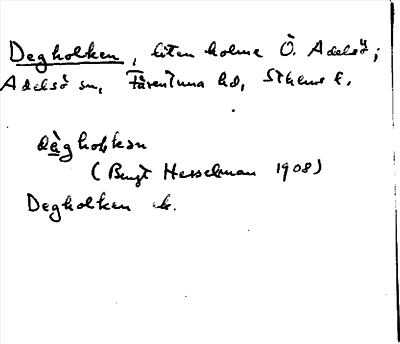 Degholken, liten holme Ö. Adelsö;
Adelsö sn, Färentuna hd, Sthlms l.
dèghol̥kən
(Bengt Hesselman 1908)
Degholken